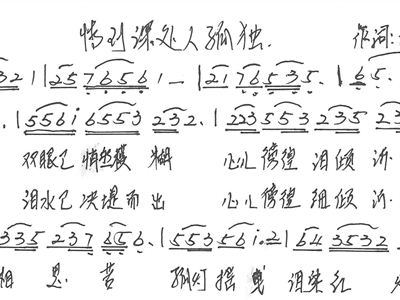 情到深处人孤独. 作词:
321|2576561—|2176535.|65.
.|5561 6553 232.|223553 235 23
双眼已 悄然模 糊 心儿傍徨 泪倾 沂.
泪水已 决堤而 出 心儿傍徨 细倾 沂.
335 237 656.|553 561.2|64 3532
相 思. 苦 孤灯 摇 曳 泪染红